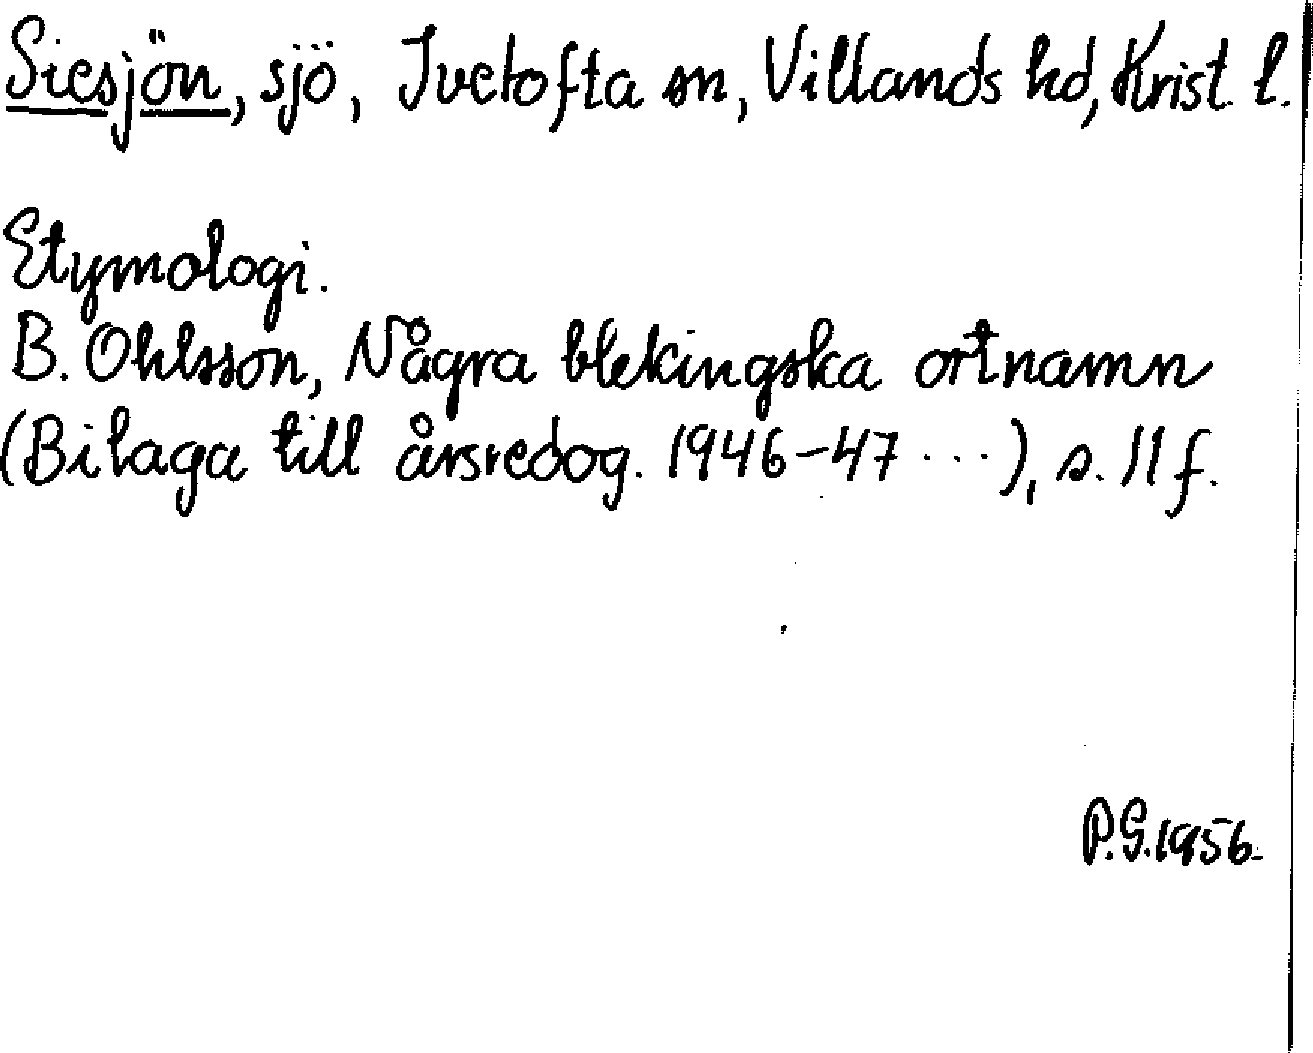 Siesjön, sjö, Ivetofta sn, Villands hd, Krist. l.
Etymologi.
B. Ohlsson, Några blekingska ortnamn
(Bilaga till årsredog. 1946-47 ...), s. 11 f.
P.G. 1956.